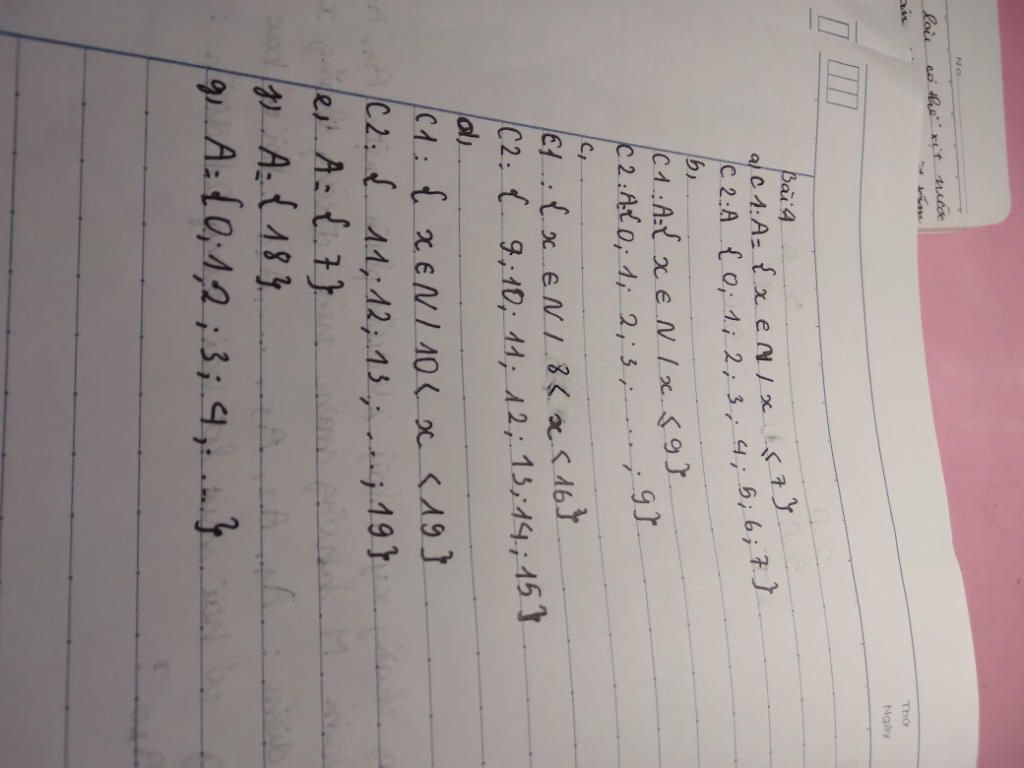 Bài 4
a, C1. A = { x ∈ N / x < 7 }
C2. A { 0. 1; 2; 3; 4; 5; 6; 7 }
b,
C1. A = { x ∈ N / x < 9 }
C2. A { 0. 1; 2; 3; ....; 9 }
c,
C1 : { x ∈ N / 8 < x < 16 }
C2 : { 9. 10. 11. 12; 13; 14; 15 }
d,
C1 : { x ∈ N / 10 < x < 19 }
C2 : { 11; 12; 13; ...; 19 }
e, A = { 7 }
A = { 18 }
g, A = { 0. 1, 2; 3; 4; .... }
Thứ
Ngày
No.
có thể
nước